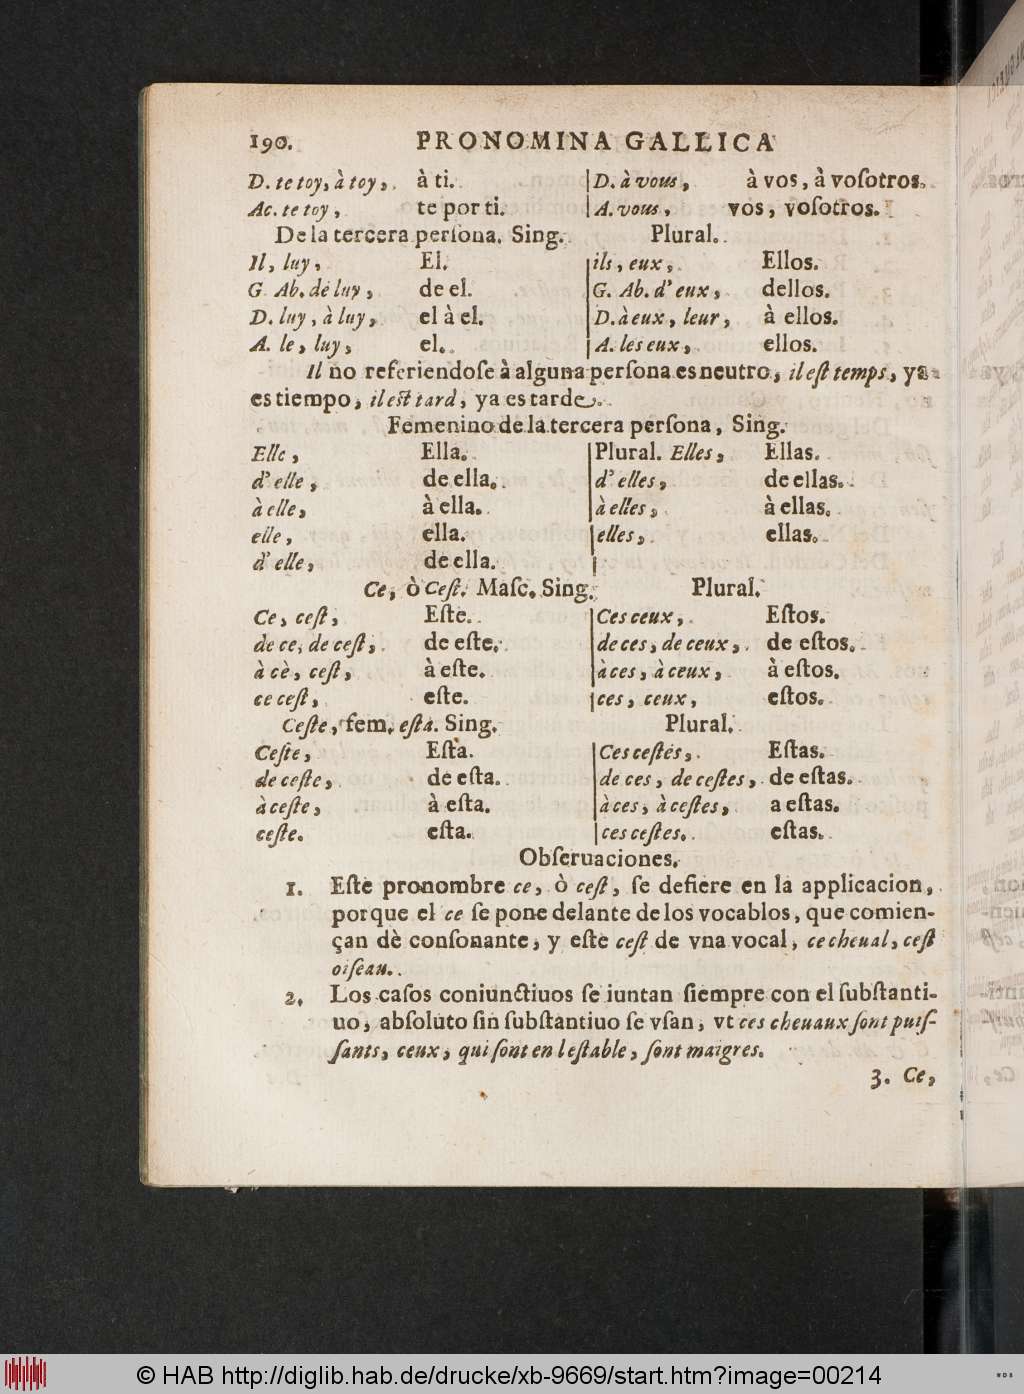 190. PRONOMINA GALLICA
D. te toy, à toy, à ti. D. à vous, à vos, à voſotros.
Ac. te toy, te por ti. A. vous, vos, voſotros.
De la tercera perſona. Sing. Plural.
Il, luy, El. ils, eux, Ellos.
G. Ab. de luy, de el. G. Ab. d'eux, dellos.
D. luy, à luy, el à el. D. à eux, leur, à ellos.
A. le, luy, el. A. les eux, ellos.
Il no referiendoſe à alguna perſona es neutro, il eſt temps, ya
es tiempo, il eſt tard, ya es tarde.
Femenino de la tercera perſona, Sing.
Elle, Ella. Plural. Elles, Ellas.
d'elle, de ella. d'elles, de ellas.
à elle, à ella. à elles, à ellas.
elle, ella. elles, ellas.
d'elle, de ella.
Ce, ò Ceſt. Maſc. Sing. Plural.
Ce, ceſt, Eſte. Ces ceux, Eſtos.
de ce, de ceſt, de eſte. de ces, de ceux, de eſtos.
à cè, ceſt, à eſte. à ces, à ceux, à eſtos.
ce ceſt, eſte. ces, ceux, eſtos.
Ceſte, fem. eſta. Sing. Plural.
Ceſte, Eſta. Ces ceſtes, Eſtas.
de ceſte, de eſta. de ces, de ceſtes, de eſtas.
à ceſte, à eſta. à ces, à ceſtes, a eſtas.
ceſte. eſta. ces ceſtes. eſtas.
Obſeruaciones.
1. Eſte pronombre ce, ò ceſt, ſe defiere en la applicacion,
porque el ce ſe pone delante de los vocablos, que comien-
çan dè conſonante, y eſte ceſt de vna vocal, ce cheual, ceſt
oiſeau.
2. Los caſos coniunctiuos ſe iuntan ſiempre con el ſubſtanti-
uo, abſoluto ſin ſubſtantiuo ſe vſan, vt ces cheuaux ſont puiſ-
ſants, ceux, qui ſont en l eſtable, ſont maigres.
3. Ce,
© HAB http://diglib.hab.de/drucke/xb-9669/start.htm?image=00214